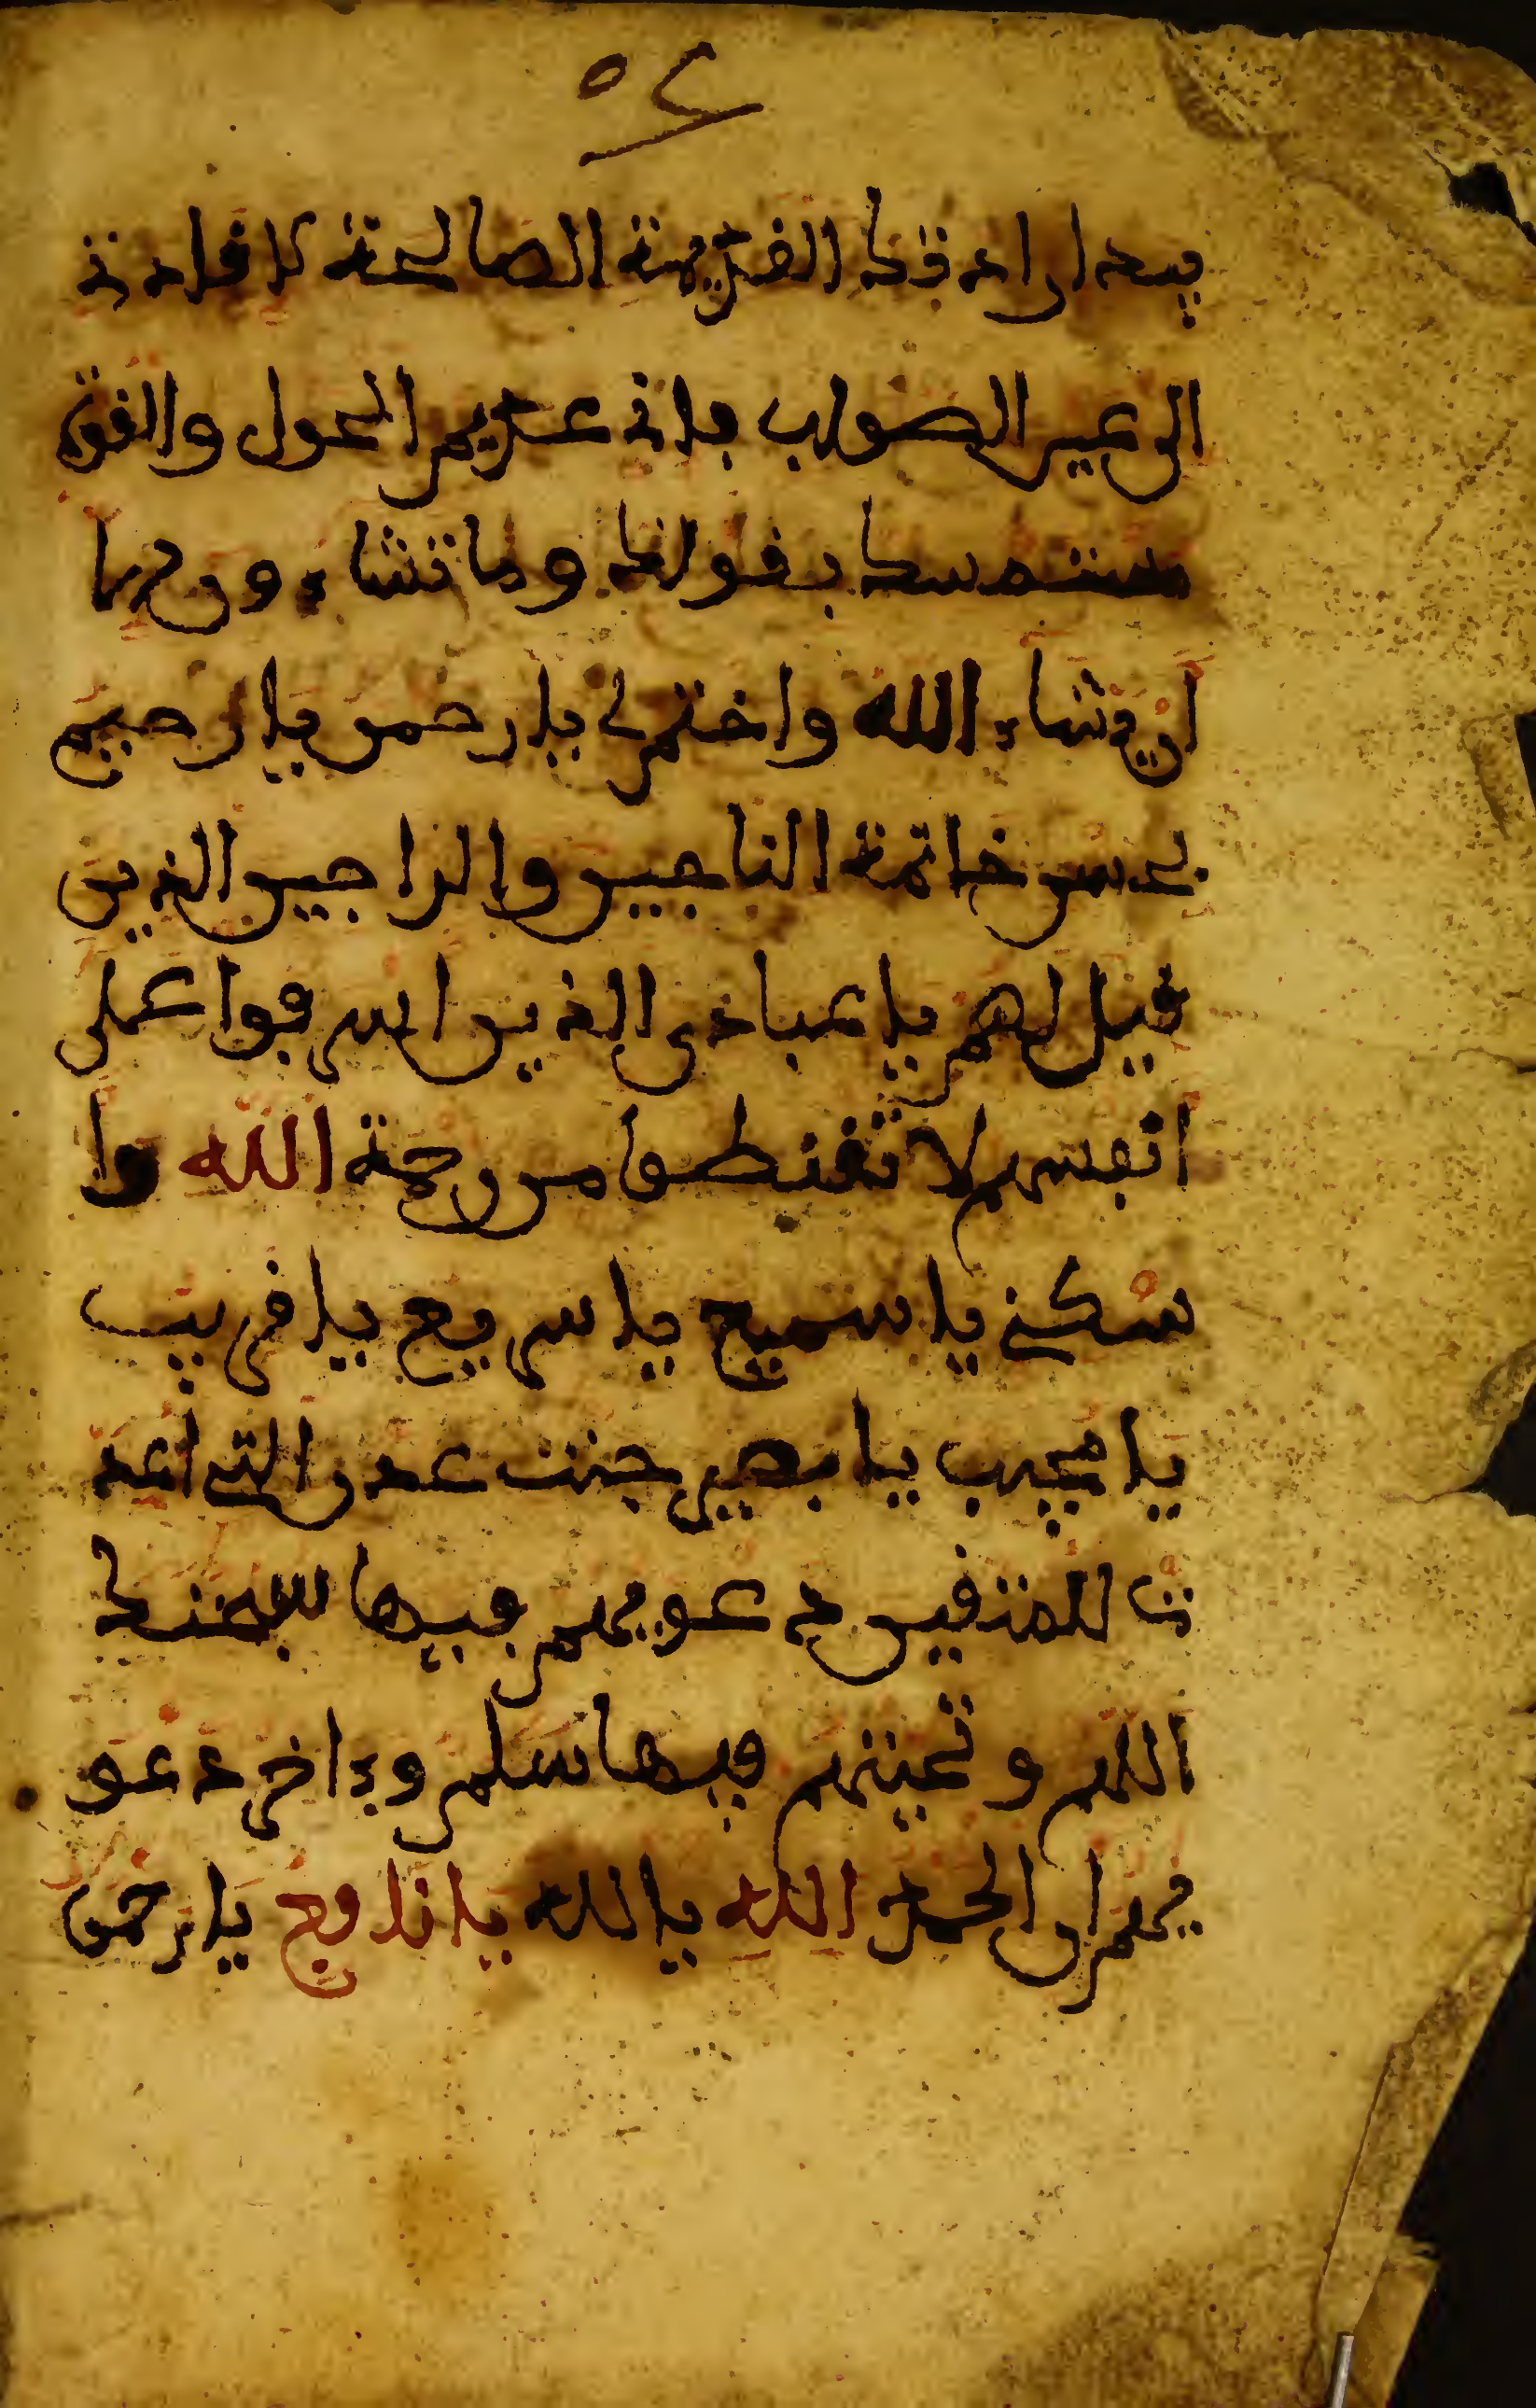 ٥٤
بيد ارادتك القديمة الصالحة لا فادنة
الى عير الصواب فاني عديم الحول والقوة
مستمسك بقولك وما تشاءون الا
ان يشاء الله واختم لي يا رحمن يا رحيم
بحسن خاتمة الناجين والراجين الذين
قيل لهم يا عبادي الذين اسرفوا على
انفسهم لا تقنطوا من رحمة الله وا
سكني يا سميع يا سريع يا قريب
يا مجيب يا بصير جنت عدن التي اعد
ت للمتقين دعويهم فيها سبحنك
اللهم وتحيتهم فيها سلم وءاخر دعو
يهم ان الحمد الله يا الله يا نافع يا رحمن